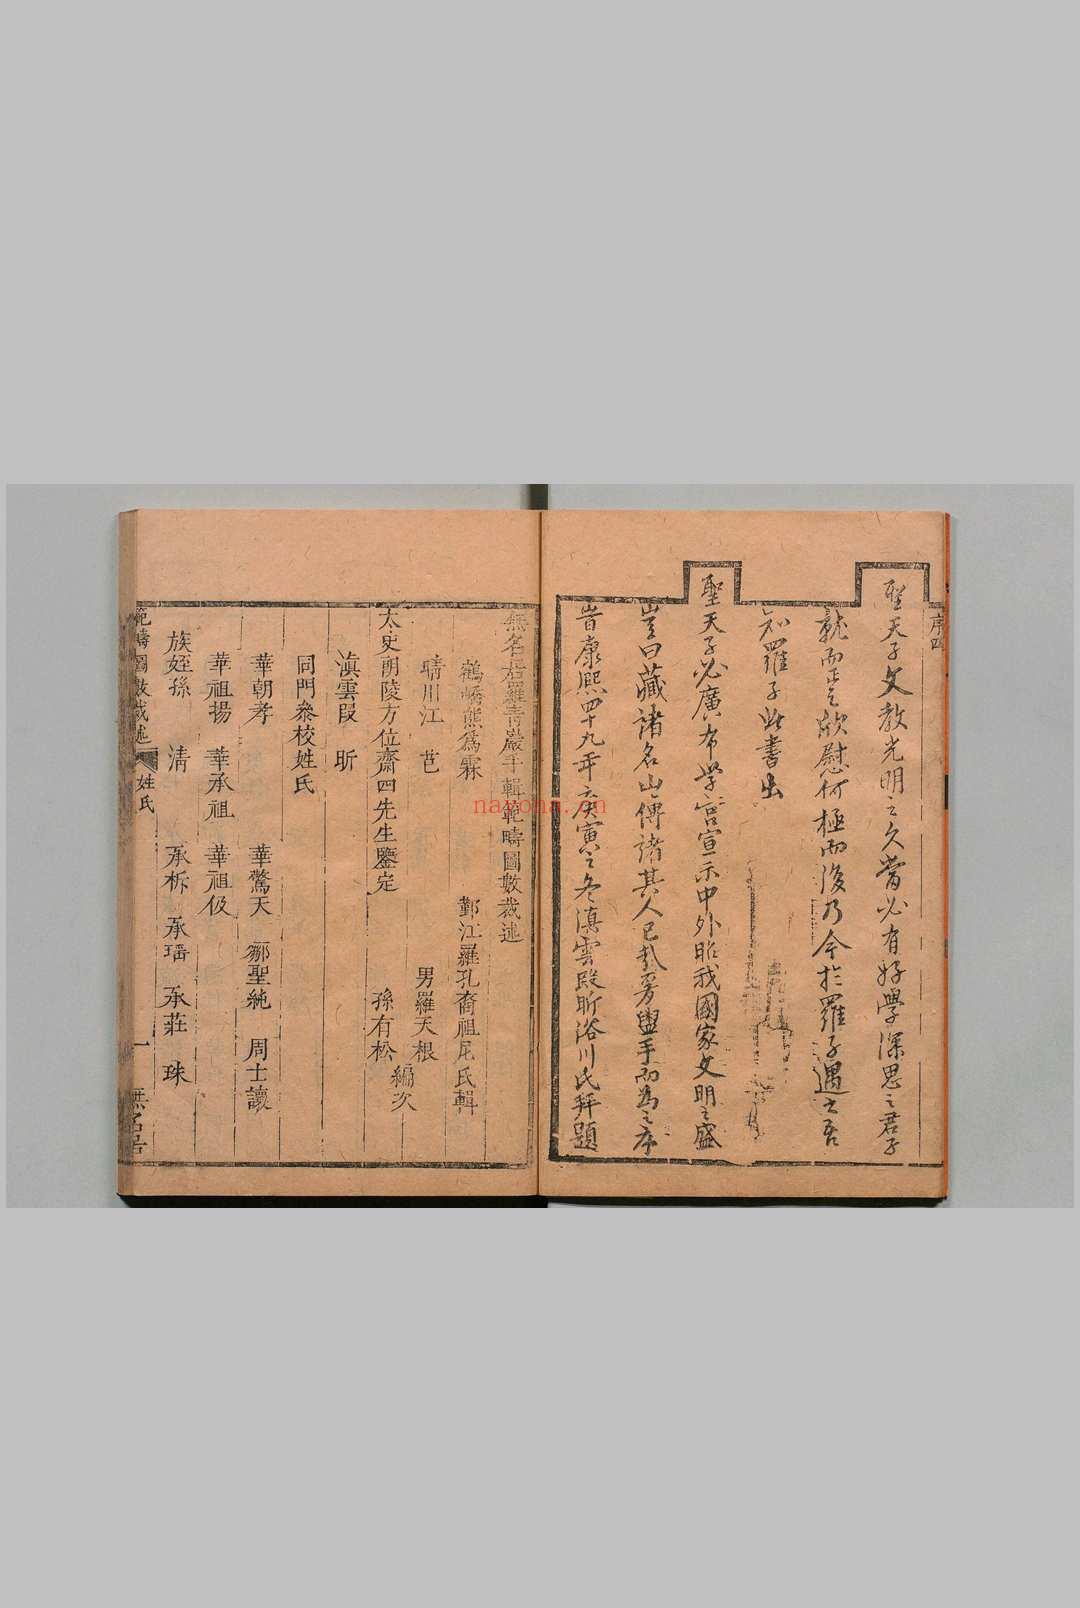 序四
聖天子文教光明之久當必有好學深思之君子
就而正之欣慰何極而後乃今於羅子遇之吾
知羅子此書出
聖天子必廣布學宮宣示中外昭我國家文明之盛
豈曰藏諸名山傳諸其人已哉爰盥手而為之序
旹康熙四十九年庚寅之冬滇雲段昕浴川氏拜題
無名居羅青巖手輯範疇圖數裁述
鶴嶠熊爲霖
鄞江羅孔裔祖尼氏輯
晴川江 芑
男羅天根
編次
太史朗陵方位齋四先生鑒定
孫有松
滇雲段 昕
同門叅校姓氏
華朝孝 華驚天 鄒聖純 周士讓
華祖揚 華承祖 華祖伋
族姪孫 清 承柝 承璠 承莊 珠
範疇圖數裁述 姓氏 一 無名居
nayona.cn